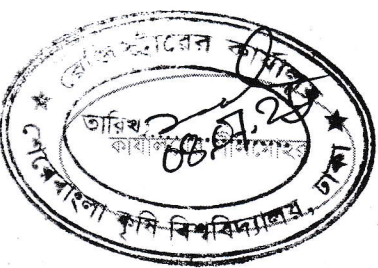 রেজিস্ট্রারের কার্যালয়
তারিখ
কার্যালয় সীলমোহর
শেরেবাংলা কৃষি বিশ্ববিদ্যালয়, ঢাকা